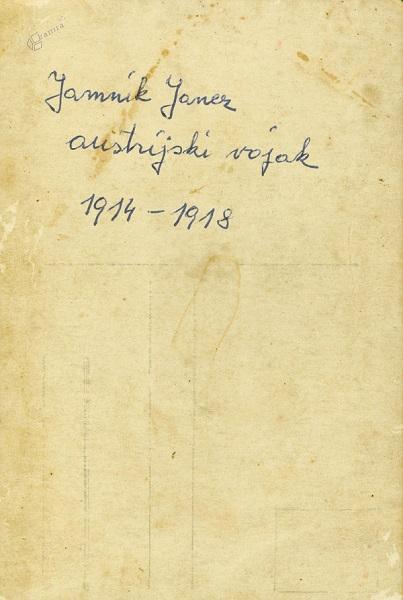 kamra
Jamnik Janez
austrijski vojak
1914 - 1918